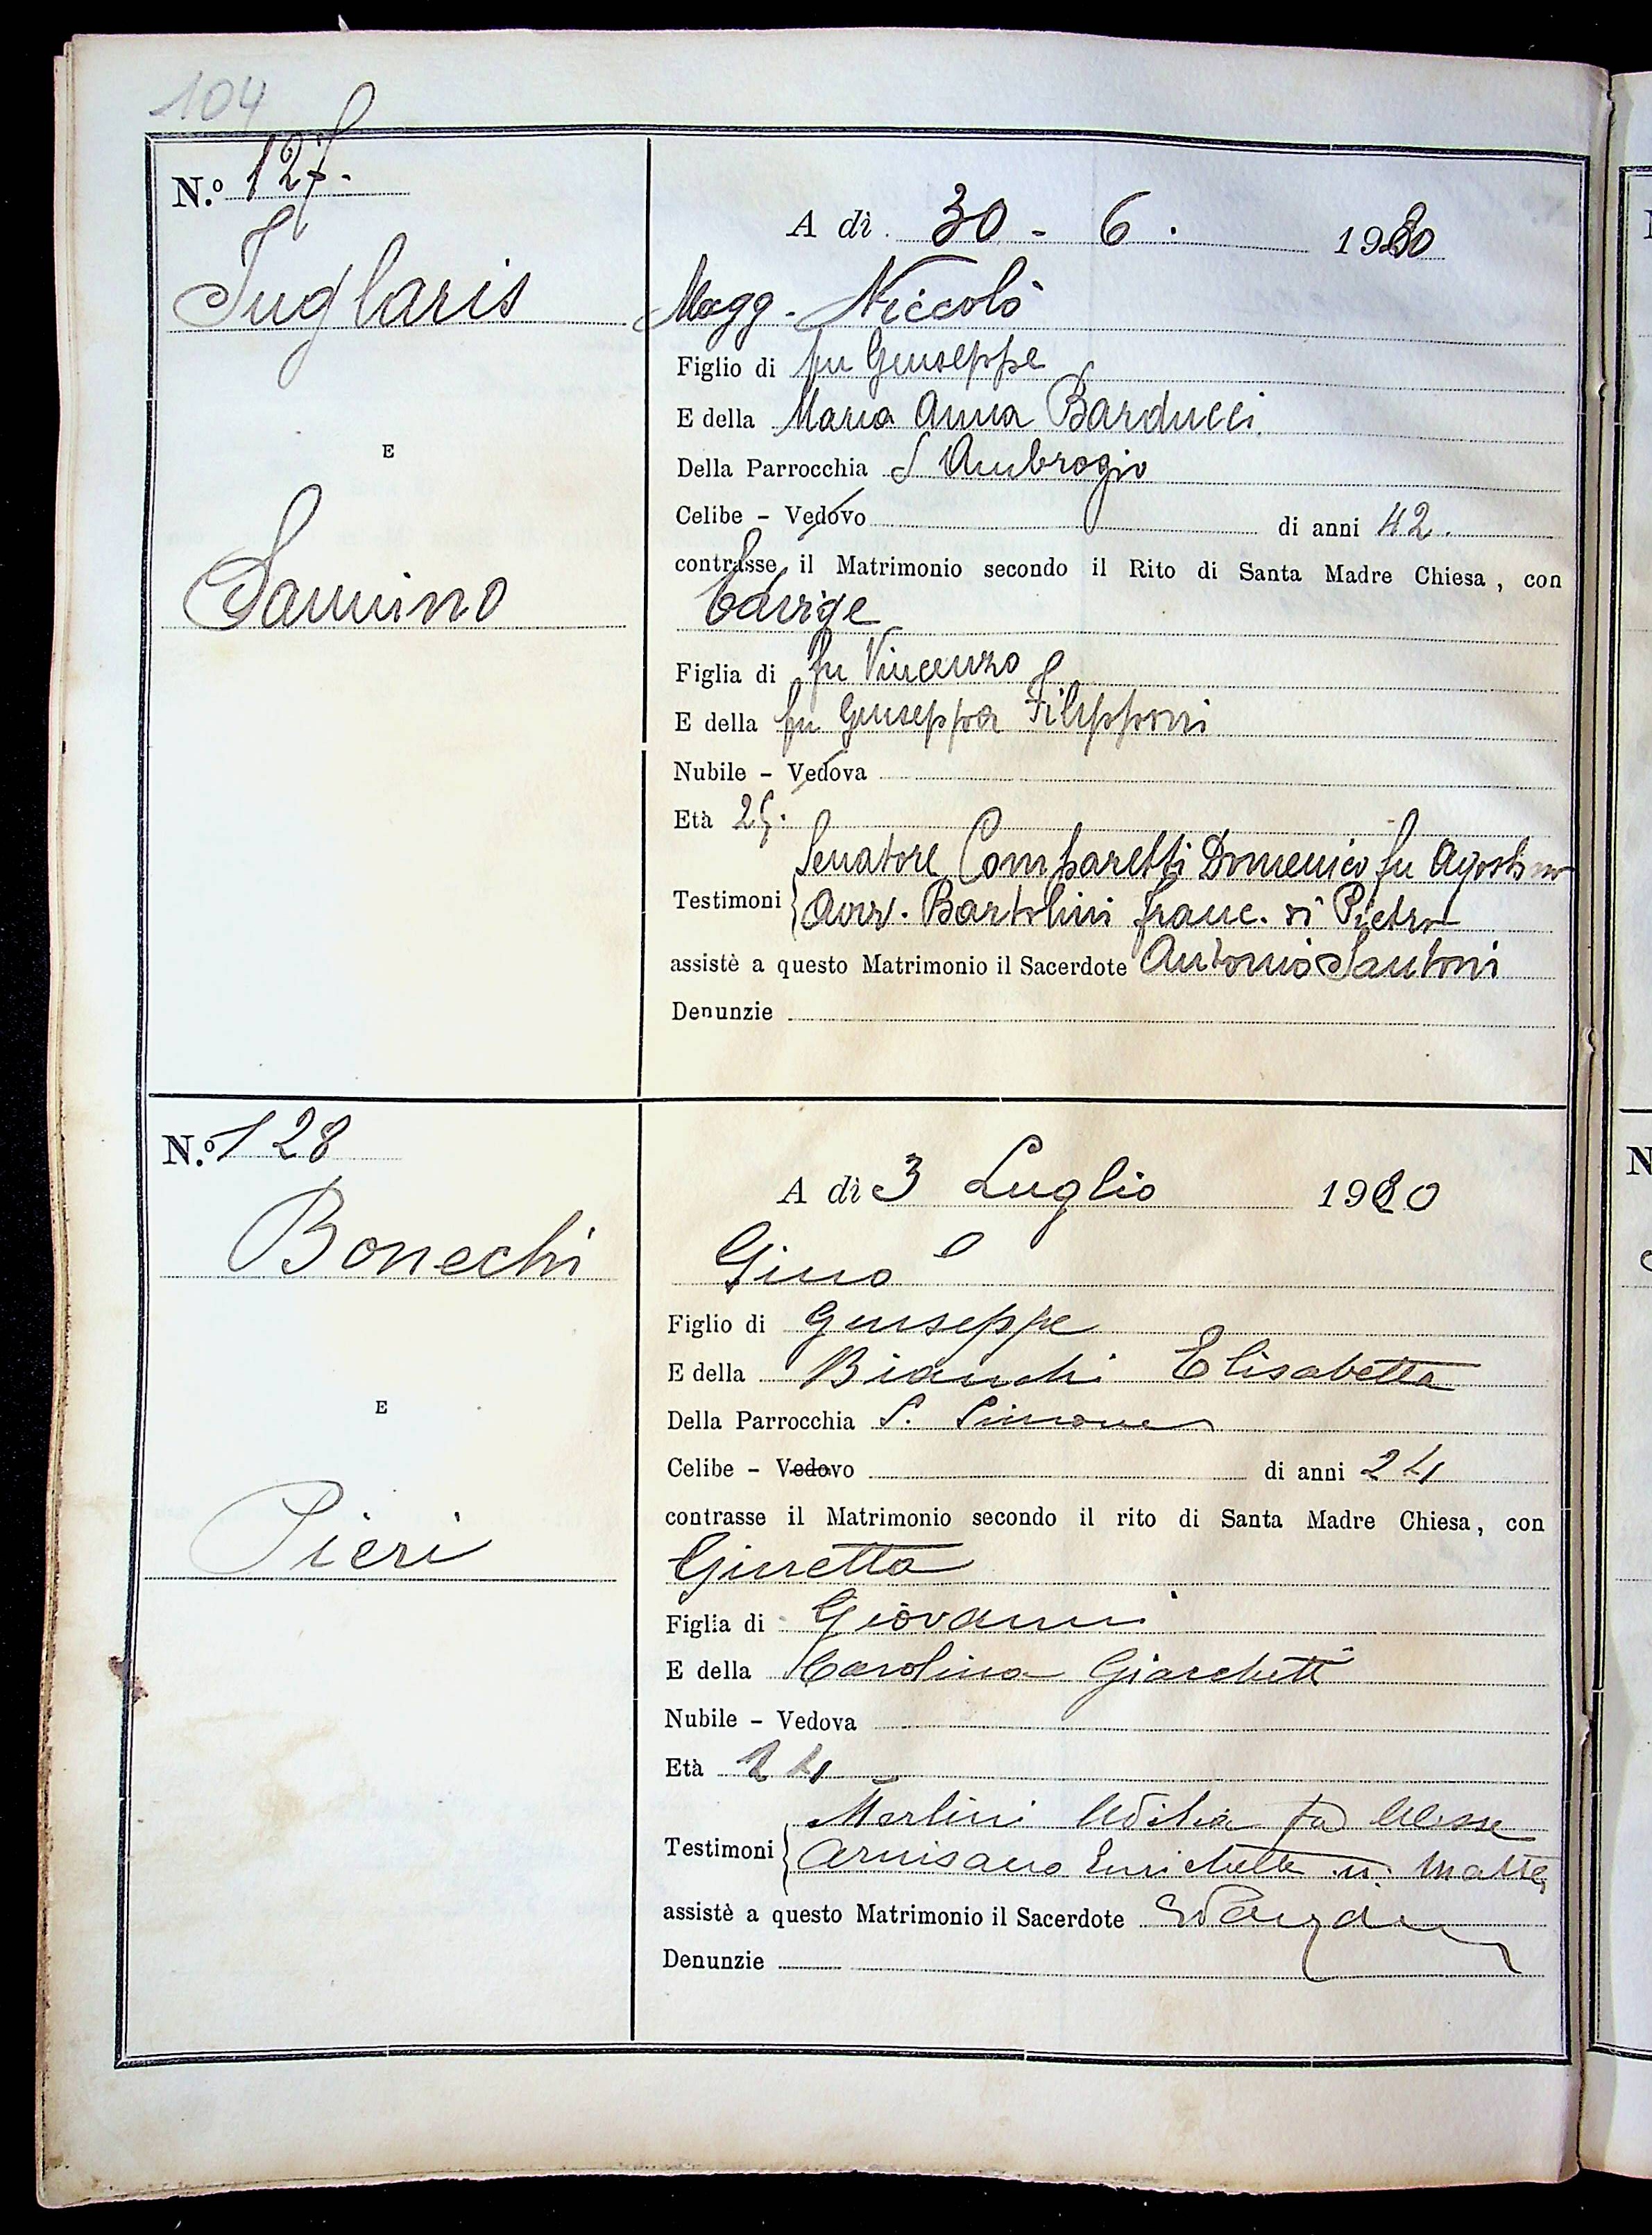 104
N.º 127.
A dì. 30 - 6. 1920
Juglaris
Magg. Niccolò
Figlio di fu Giuseppe
E della Maria Anna Barducci
Della Parrocchia S Ambrogio
E
Celibe - Vedovo di anni 42.
contrasse il Matrimonio secondo il Rito di Santa Madre Chiesa, con
Sannino
Edvige
Figlia di fu Vincenzo
E della fu Giuseppa Filipponi
Nubile - Vedova
Età 25.
Senatore Comparetti Domenico fu Agostino
Testimoni Avv. Bartolini Franc. di Pietro
assistè a questo Matrimonio il Sacerdote Antonio Santoni
Denunzie
N.º 128
A dì 3 Luglio 1920
Bonechi
Gino
Figlio di Giuseppe
E della Bianchi Elisabetta
Della Parrocchia S. Simone
E
Celibe - Vedovo di anni 24
contrasse il Matrimonio secondo il rito di Santa Madre Chiesa, con
Pieri
Giuretta
Figlia di Giovanni
E della Carolina Giachetti
Nubile - Vedova
Età 24
Merlini
Testimoni Arnisano
assistè a questo Matrimonio il Sacerdote
Denunzie